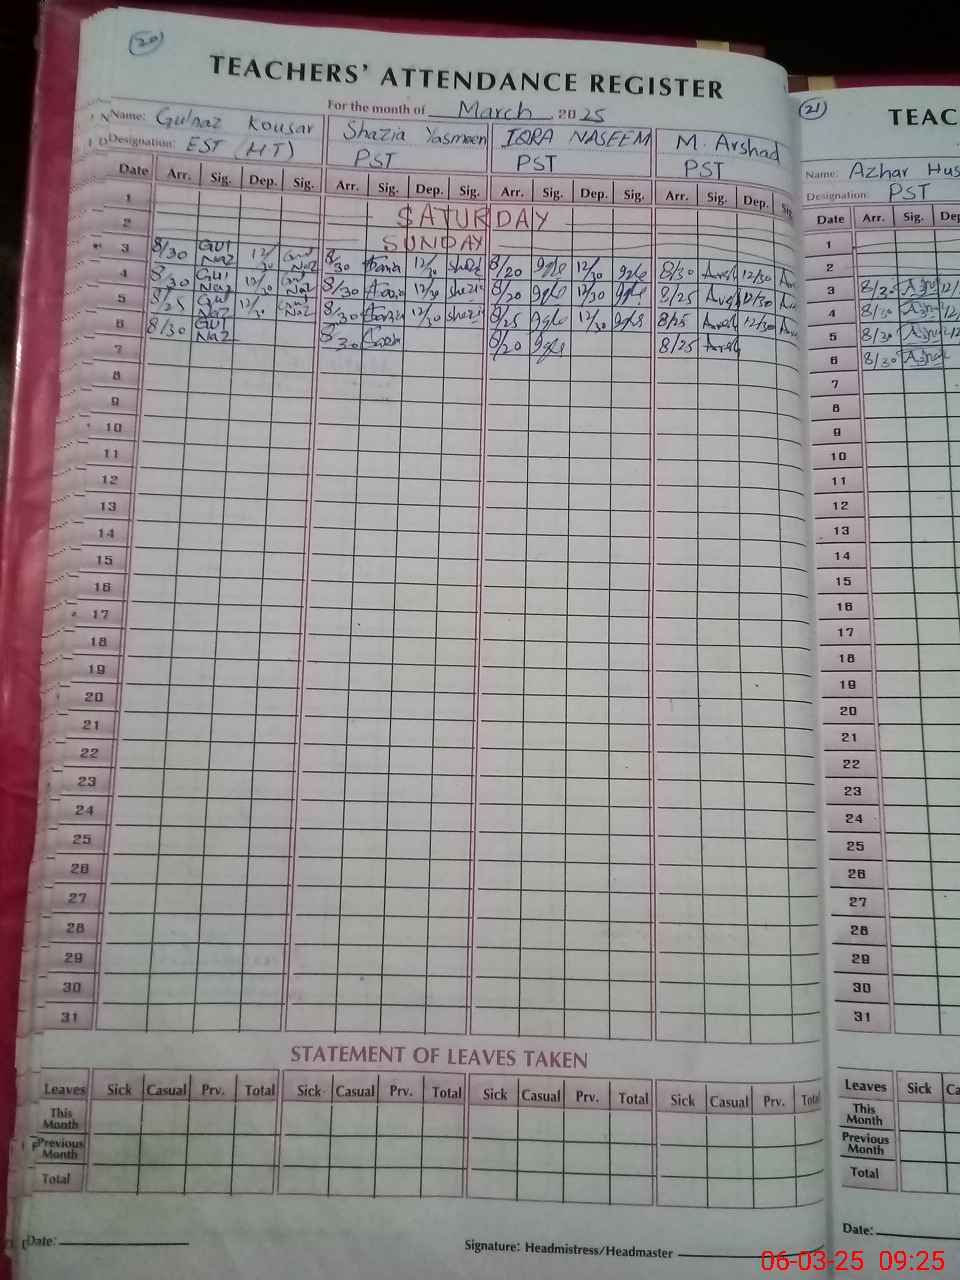 20
TEACHERS' ATTENDANCE REGISTER
For the month of March 2025
Name: Gulnaz Kousar Shazia Yasmeen IQRA NASEEM M. Arshad
Designation: EST (HT) PST PST PST
Date Arr. Sig. Dep. Sig. Arr. Sig. Dep. Sig. Arr. Sig. Dep. Sig. Arr. Sig. Dep. Sig.
1 SATURDAY
2 SUNDAY
3 8/30 Gul Naz 12/30 Gul Naz 8/30 12/30 8/20 12/30 8/30 12/30
4 8/30 Gul Naz 12/30 Gul Naz 8/30 12/30 8/20 12/30 8/25 12/30
5 8/25 Gul Naz 12/30 Gul Naz 8/30 12/30 8/25 12/30 8/25 12/30
6 8/30 Gul Naz 8/30 8/20 8/25
7
8
9
10
11
12
13
14
15
16
17
18
19
20
21
22
23
24
25
26
27
28
29
30
31
STATEMENT OF LEAVES TAKEN
Leaves Sick Casual Prv. Total Sick Casual Prv. Total Sick Casual Prv. Total Sick Casual Prv. Total
This Month
Previous Month
Total
Date:
Signature: Headmistress/Headmaster
21
TEAC
Name: Azhar Hus
Designation: PST
Date Arr. Sig. Dep
1
2
3 8/25 12/
4 8/30 12/
5 8/30 12
6 8/30
7
8
9
10
11
12
13
14
15
16
17
18
19
20
21
22
23
24
25
26
27
28
29
30
31
Leaves Sick Ca
This Month
Previous Month
Total
Date:
06-03-25 09:25